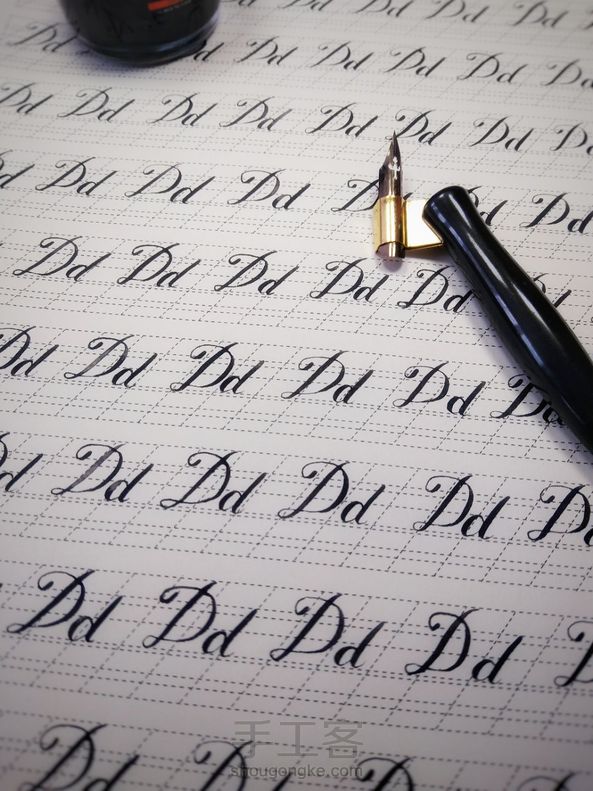 Dd Dd Dd Dd Dd
Dd Dd Dd Dd Dd Dd Dd
Dd Dd Dd Dd Dd Dd Dd Dd
d Dd Dd Dd D d Dd
Dd Dd Dd Dd Dd
Dd Dd Dd Dd Dd Dd
d Dd Dd Dd Dd Dd
Dd Dd Dd Dd D
Dd Dd Dd
手工客
shougongke.com